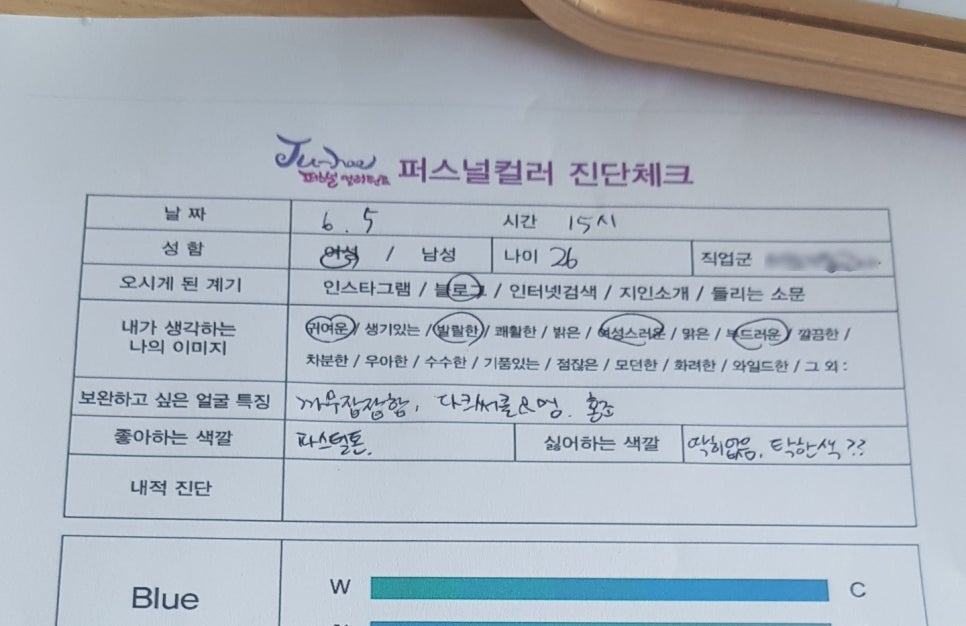 Ju-hee 퍼스널컬러 진단체크
퍼스널 컬러리스트
날 짜 6. 5 시간 15시
성 함 여성 / 남성 나이 26 직업군
오시게 된 계기 인스타그램 / 블로그 / 인터넷검색 / 지인소개 / 들리는 소문
내가 생각하는 귀여운 / 생기있는 / 발랄한 / 쾌활한 / 밝은 / 여성스러운 / 맑은 / 부드러운 / 깔끔한 /
나의 이미지 차분한 / 우아한 / 수수한 / 기품있는 / 점잖은 / 모던한 / 화려한 / 와일드한 / 그 외 :
보완하고 싶은 얼굴 특징 까무잡잡함, 다크써클 홍조
좋아하는 색깔 파스텔톤. 싫어하는 색깔 딱히없음, 탁한색??
내적 진단
Blue W C